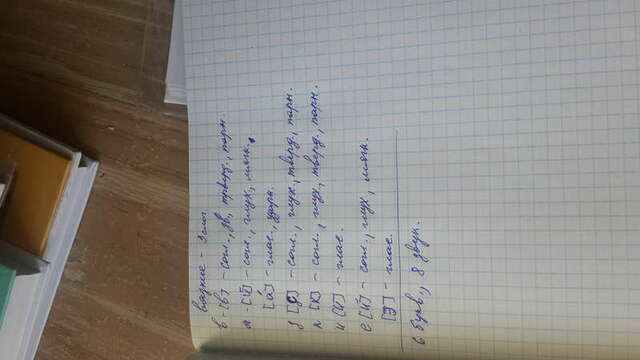 вязкие - 3 слог.
в - [в] - согл., зв, тверд., парн.
я - [й] - согл., глух, мягк.
[á] - глас., ударн.
з [с] - согл., глух., тверд., парн.
к [к] - согл., глух, тверд., парн.
и [и] - глас.
е [й] - согл., глух, мягк.
[э] - глас.
6 букв., 8 звук.